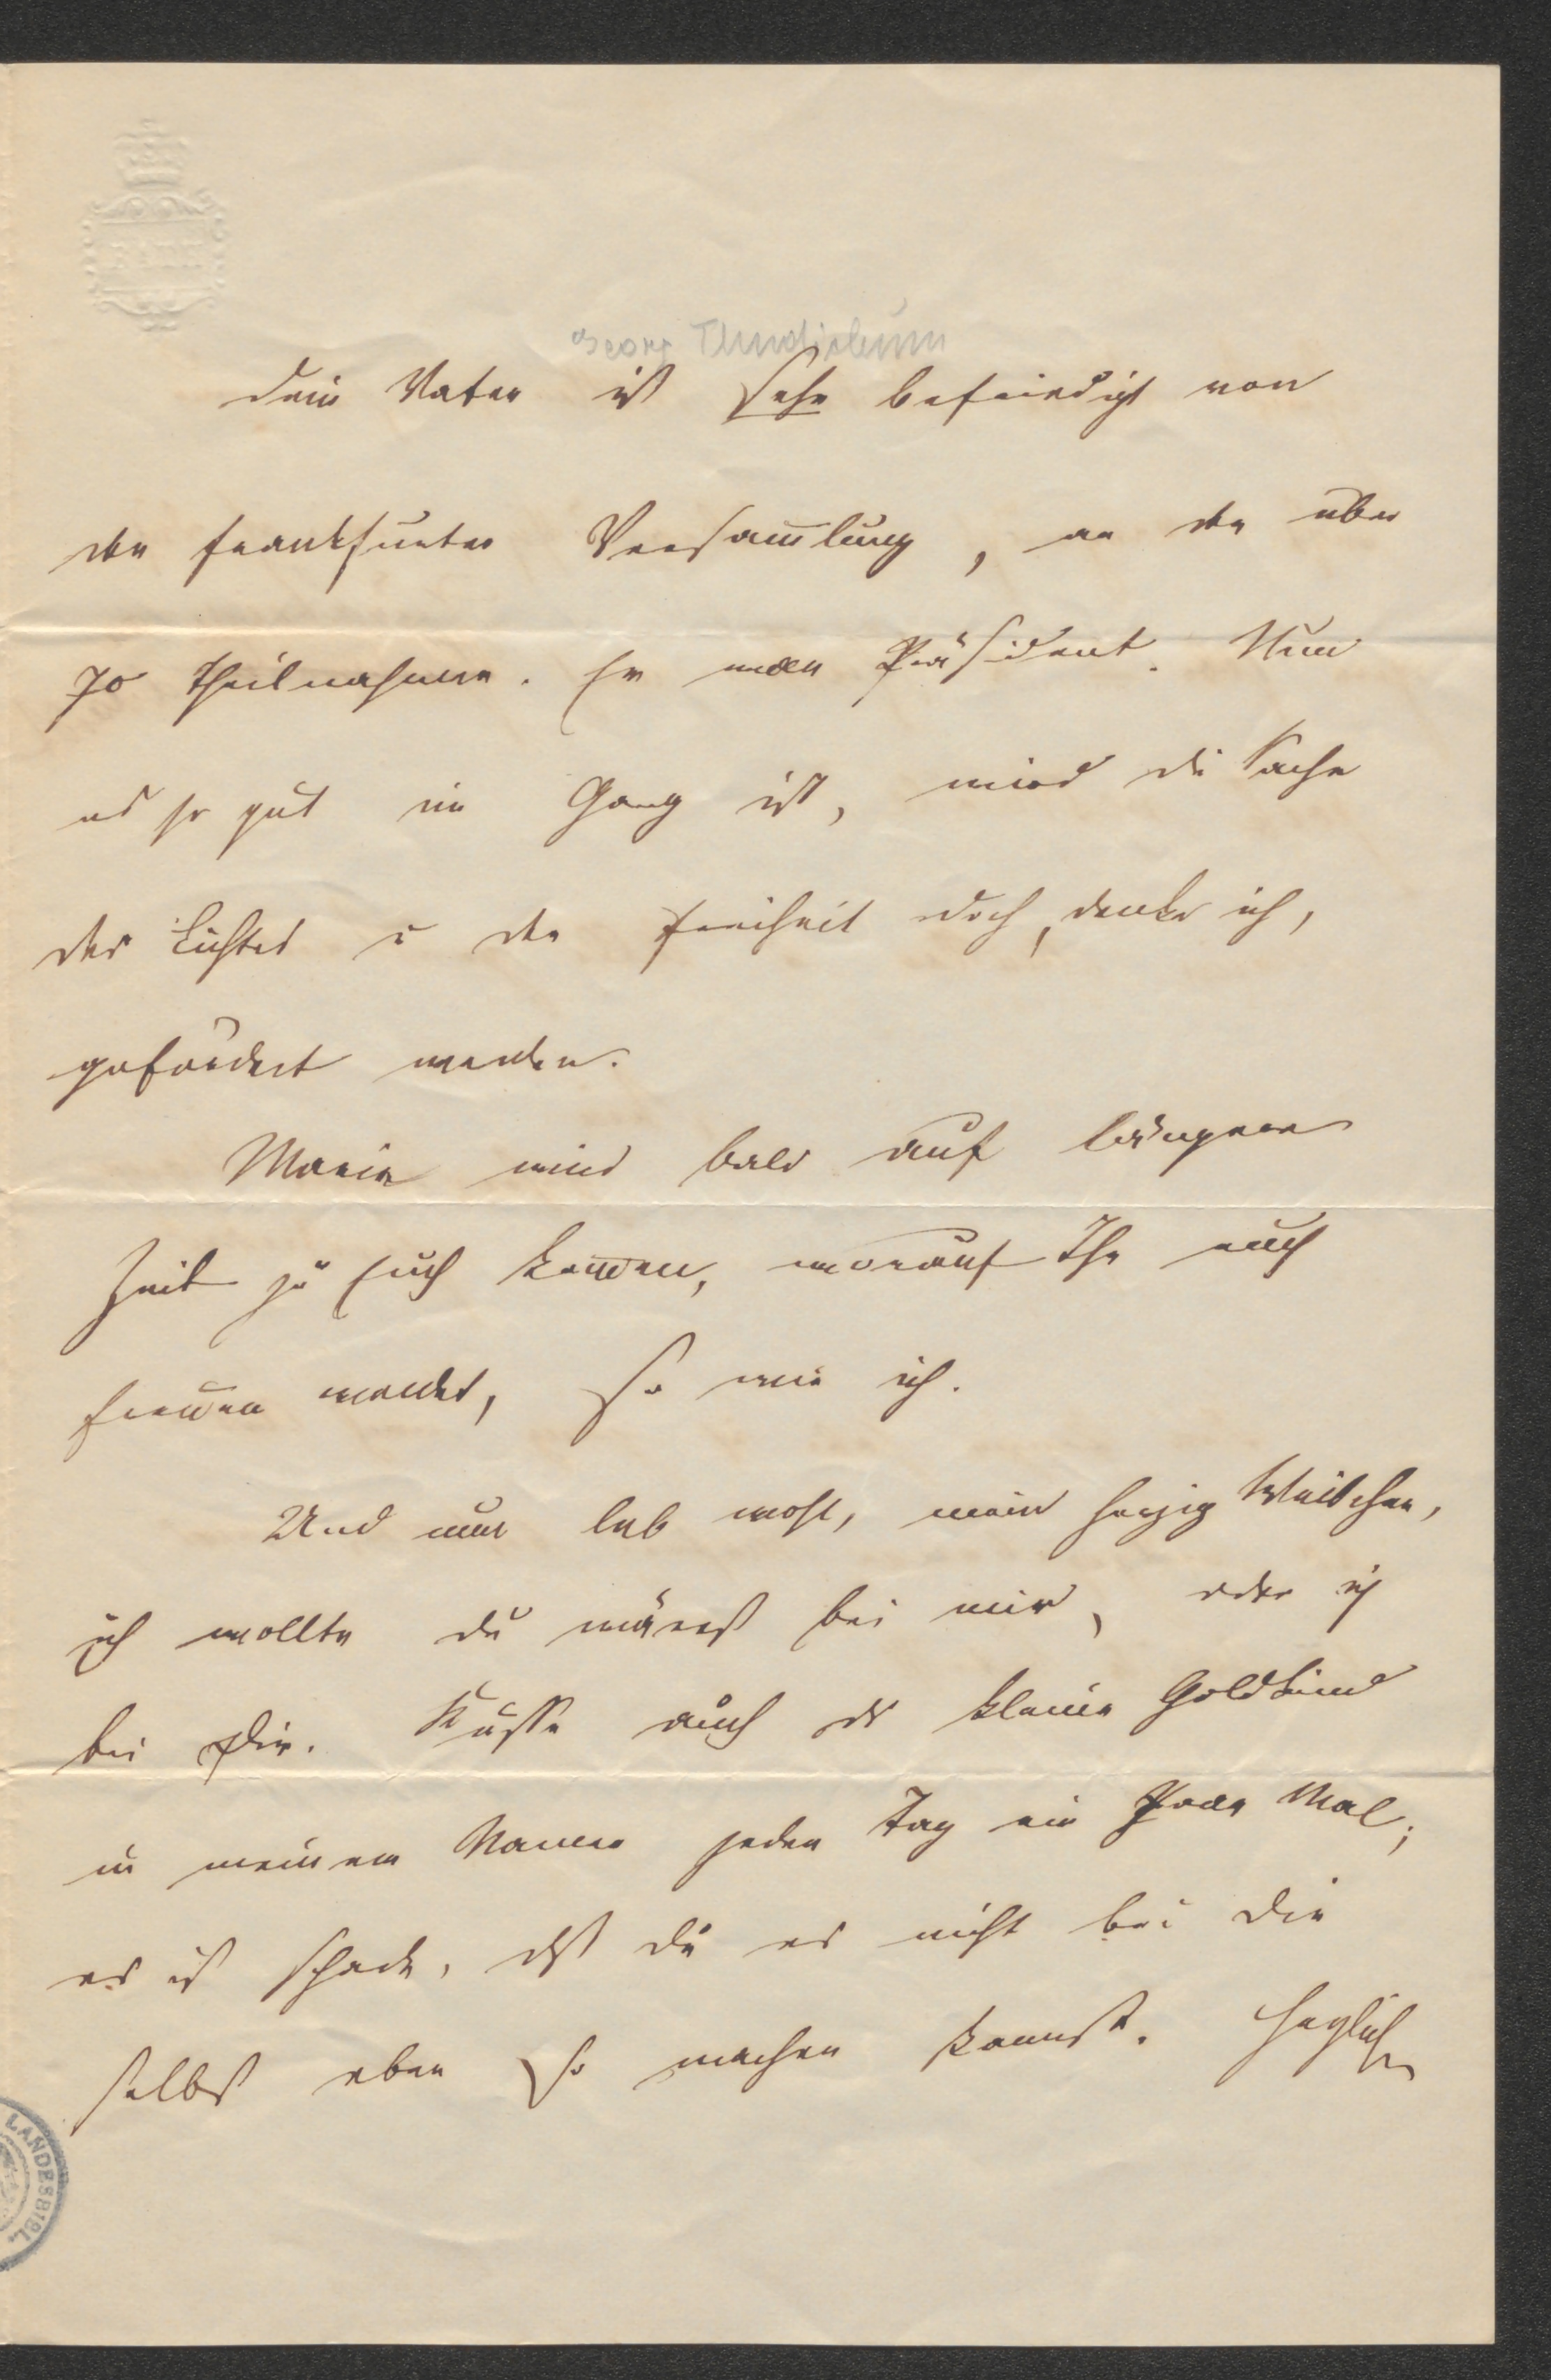 Georg Thudichum
Dein Vater ist sehr befriedigt von
der Frankfurter Versam̅lung, an der über
70 theilnahmen. Er war Präsident. Nun
es so gut im Gang ist, wird die Sache
des Lichtes u der Freiheit doch, denke ich,
gefördert werden.
Marie wird bald auf längere
Zeit zu Euch kom̅en, worauf Ihr euch
freuen werdet, so wie ich.
Und nun leb wohl, mein herzig Weibchen,
ich wollte du wärest bei mir, oder ich
bei Dir. Küsse auch das kleine Goldkind
in meinem Namen jeden Tag ein Paar Mal;
es ist schade, daß du es nicht bei dir
selbst eben so machen kannst. Herzlich
LANDESBIBL.